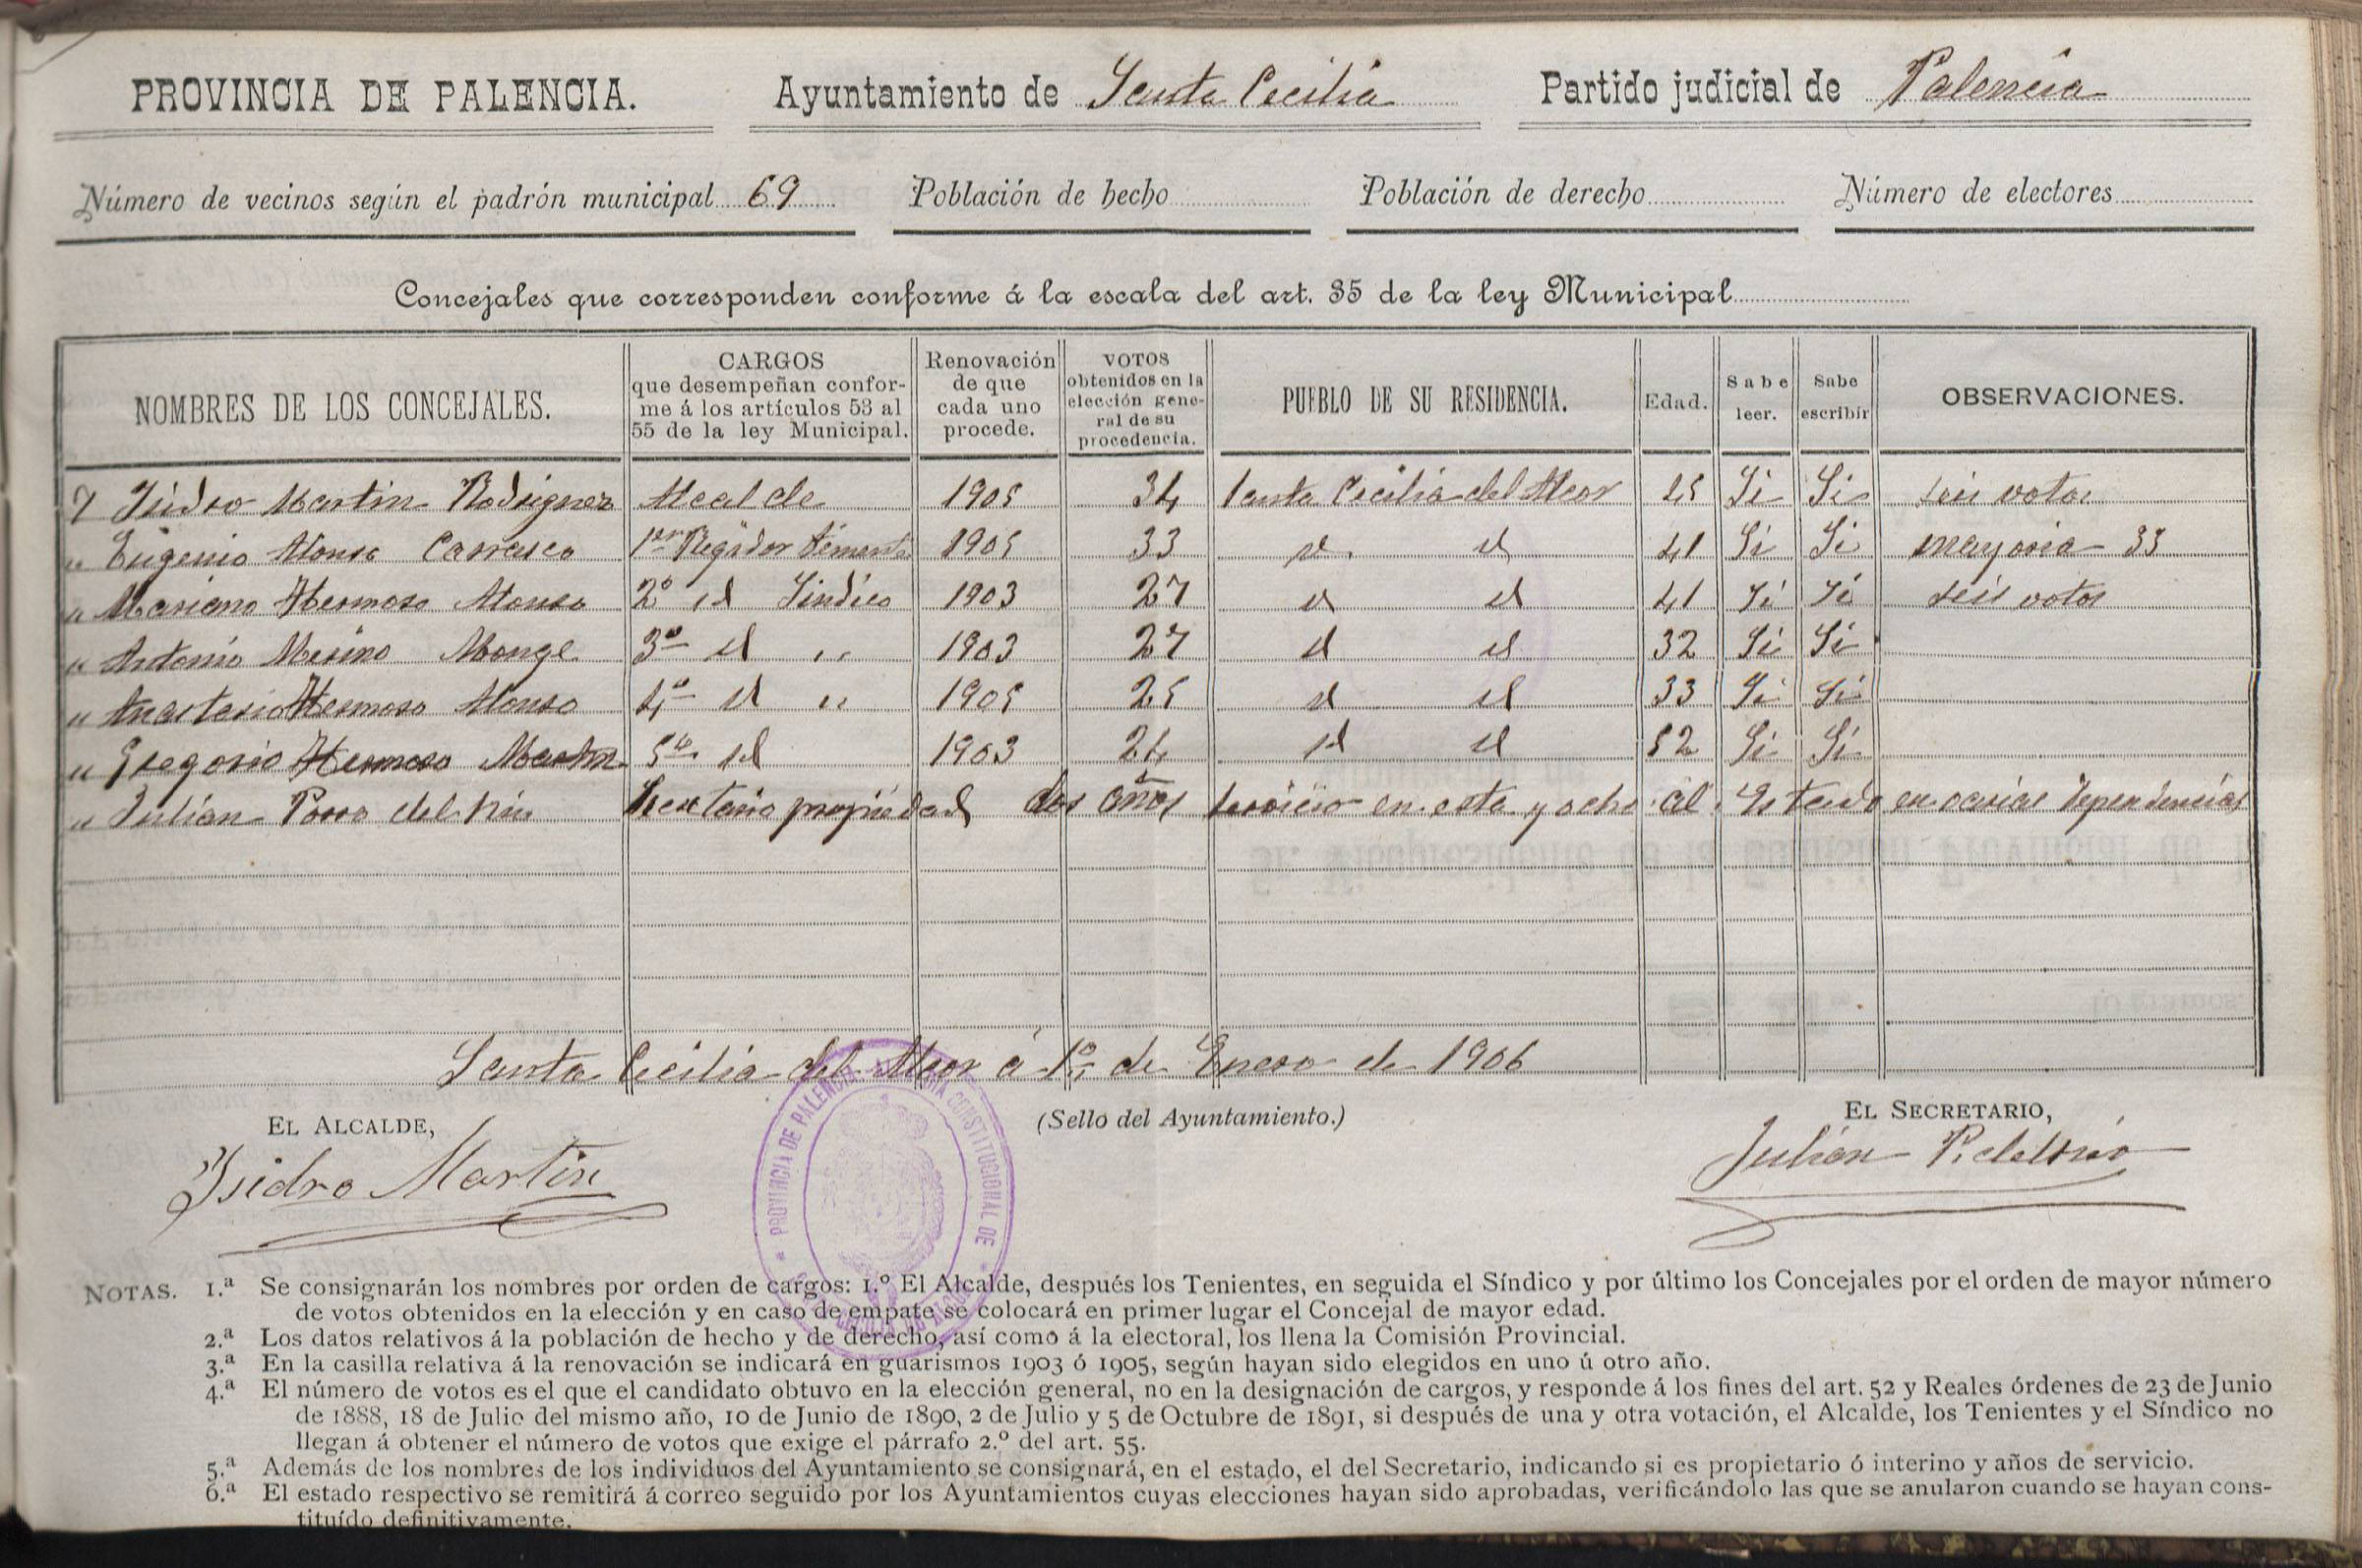 PROVINCIA DE PALENCIA. Ayuntamiento de Santa Cecilia Partido judicial de Palencia
Número de vecinos según el padrón municipal 69 Población de hecho Población de derecho Número de electores
Concejales que corresponden conforme á la escala del art. 35 de la ley Municipal
NOMBRES DE LOS CONCEJALES. CARGOS que desempeñan conforme á los artículos 53 al 55 de la ley Municipal. Renovación de que cada uno procede. VOTOS obtenidos en la elección general de su procedencia. PUEBLO DE SU RESIDENCIA. Edad. Sabe leer. Sabe escribir OBSERVACIONES.
Isidro Martin Rodriguez Alcalde 1905 34 Santa Cecilia del Alcor 45 Si Si seis votos
" Eugenio Alonso Carrasco 1er Regidor 1905 33 id. id 41 Si Si mayoria 33
" Mariano Hermoso Alonso 2º id Sindico 1903 27 id id 41 Si Si seis votos
" Antonio Merino Monge 3º id " 1903 27 id id 32 Si Si
" Anastasio Hermoso Alonso 4º id " 1905 25 id id 33 Si Si
" Gregorio Hermoso Martin 5º id 1903 24 id id 52 Si Si
" Julián Porro del Rio Secretario propiedad dos años servicio en esta y ocho al Estado en varias dependencias
Santa Cecilia del Alcor á 1º de Enero de 1906
EL ALCALDE, (Sello del Ayuntamiento.) EL SECRETARIO,
Isidro Martin Julián P. del Rio
PROVINCIA DE PALENCIA CONSTITUCIONAL DE
NOTAS. 1.ª Se consignarán los nombres por orden de cargos: 1.º El Alcalde, después los Tenientes, en seguida el Síndico y por último los Concejales por el orden de mayor número
de votos obtenidos en la elección y en caso de empate se colocará en primer lugar el Concejal de mayor edad.
2.ª Los datos relativos á la población de hecho y de derecho, así como á la electoral, los llena la Comisión Provincial.
3.ª En la casilla relativa á la renovación se indicará en guarismos 1903 ó 1905, según hayan sido elegidos en uno ú otro año.
4.ª El número de votos es el que el candidato obtuvo en la elección general, no en la designación de cargos, y responde á los fines del art. 52 y Reales órdenes de 23 de Junio
de 1888, 18 de Julio del mismo año, 10 de Junio de 1890, 2 de Julio y 5 de Octubre de 1891, si después de una y otra votación, el Alcalde, los Tenientes y el Síndico no
llegan á obtener el número de votos que exige el párrafo 2.º del art. 55.
5.ª Además de los nombres de los individuos del Ayuntamiento se consignará, en el estado, el del Secretario, indicando si es propietario ó interino y años de servicio.
6.ª El estado respectivo se remitirá á correo seguido por los Ayuntamientos cuyas elecciones hayan sido aprobadas, verificándolo las que se anularon cuando se hayan cons-
tituído definitivamente.